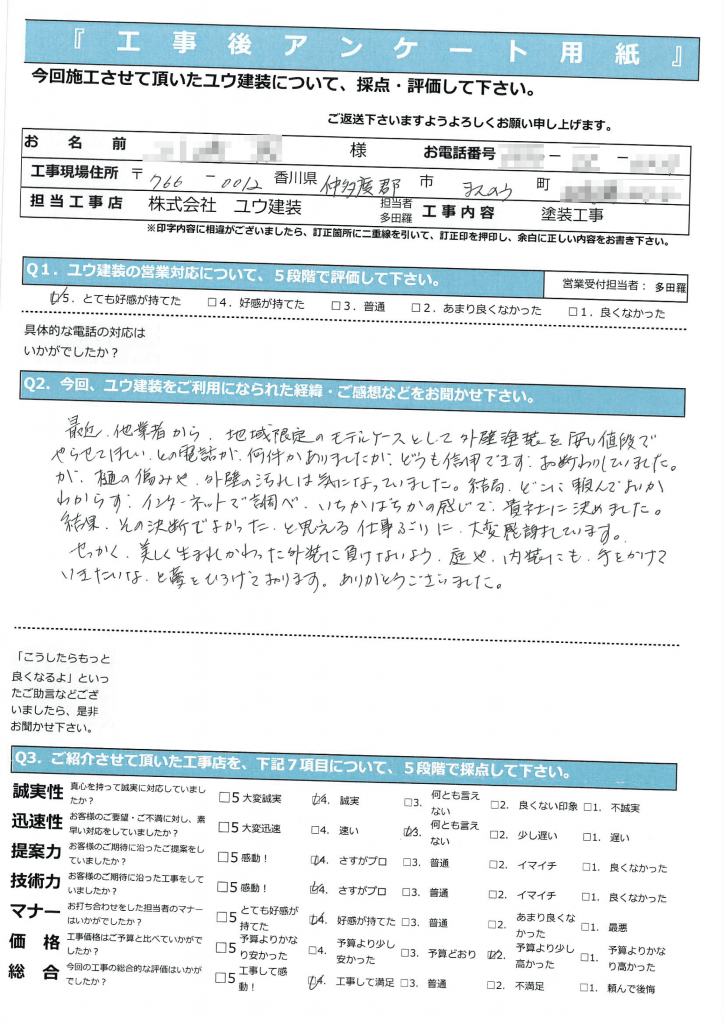 『工事後アンケート用紙』
今回施工させて頂いたユウ建装について、採点・評価して下さい。
ご返送下さいますようよろしくお願い申し上げます。
お名前 様 お電話番号 － －
工事現場住所 〒766－0012 香川県 仲多度郡 市 まんのう 町
担当工事店 株式会社 ユウ建装 担当者 多田羅 工事内容 塗装工事
※印字内容に相違がございましたら、訂正箇所に二重線を引いて、訂正印を押印し、余白に正しい内容をお書き下さい。
Q1．ユウ建装の営業対応について、５段階で評価して下さい。 営業受付担当者：多田羅
☑5．とても好感が持てた □4．好感が持てた □3．普通 □2．あまり良くなかった □1．良くなかった
具体的な電話の対応は
いかがでしたか？
Q2．今回、ユウ建装をご利用になられた経緯・ご感想などをお聞かせ下さい。
最近、他業者から、地域限定のモデルケースとして外壁塗装を安い値段で
やらせてほしい、との電話が、何件かありましたが、どうも信用できず、お断わりしていました。
が、樋の傷みや、外壁の汚れは気になっていました。結局、どこに頼んでよいか
わからず、インターネットで調べ、いちかばちかの感じで、貴社に決めました。
結果、その決断でよかった、と思える仕事ぶりに、大変感謝しています。
せっかく、美しく生まれかわった外装に負けないよう、庭や、内装にも、手をかけて
いきたいな、と夢をひろげております。ありがとうございました。
「こうしたらもっと
良くなるよ」といっ
たご助言などござ
いましたら、是非
お聞かせ下さい。
Q3．ご紹介させて頂いた工事店を、下記７項目について、５段階で採点して下さい。
誠実性 真心を持って誠実に対応していましたか？ □5 大変誠実 ☑4. 誠実 □3. 何とも言えない □2. 良くない印象 □1. 不誠実
迅速性 お客様のご要望・ご不満に対し、素早い対応をしていましたか？ □5 大変迅速 □4. 速い ☑3. 何とも言えない □2. 少し遅い □1. 遅い
提案力 お客様のご期待に沿ったご提案をしていましたか？ □5 感動！ ☑4. さすがプロ □3. 普通 □2. イマイチ □1. 良くなかった
技術力 お客様のご期待に沿った工事をしていましたか？ □5 感動！ ☑4. さすがプロ □3. 普通 □2. イマイチ □1. 良くなかった
マナー お打ち合わせをした担当者のマナーはいかがでしたか？ □5 とても好感が持てた ☑4. 好感が持てた □3. 普通 □2. あまり良くなかった □1. 最悪
価格 工事価格はご予算と比べていかがでしたか？ □5 予算よりかなり安かった □4. 予算より少し安かった □3. 予算どおり ☑2. 予算より少し高かった □1. 予算よりかなり高かった
総合 今回の工事の総合的な評価はいかがでしたか？ □5 工事して感動！ ☑4. 工事して満足 □3. 普通 □2. 不満足 □1. 頼んで後悔